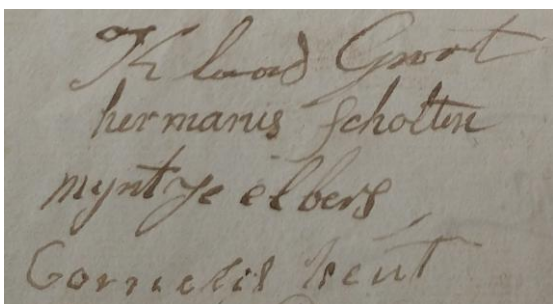 Klaas Groot
hermanis Scholten
myntje elbers
Cornelis